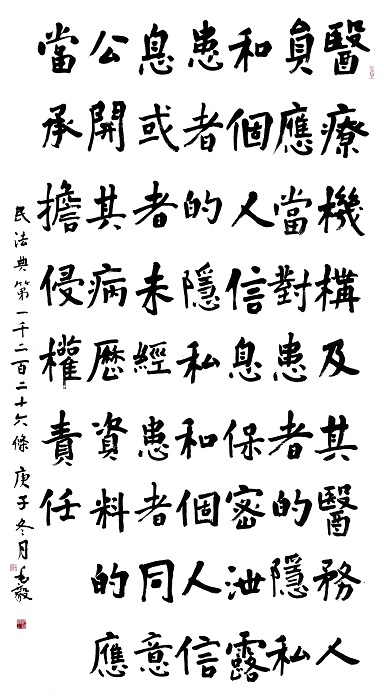 醫療機構及其醫務人
員應當對患者的隱私
和個人信息保密泄露
患者的隱私和個人信
息或者未經患者同意
公開其病歷資料的應
當承擔侵權責任
民法典第一千二百二十六條 庚子冬月 毛毅